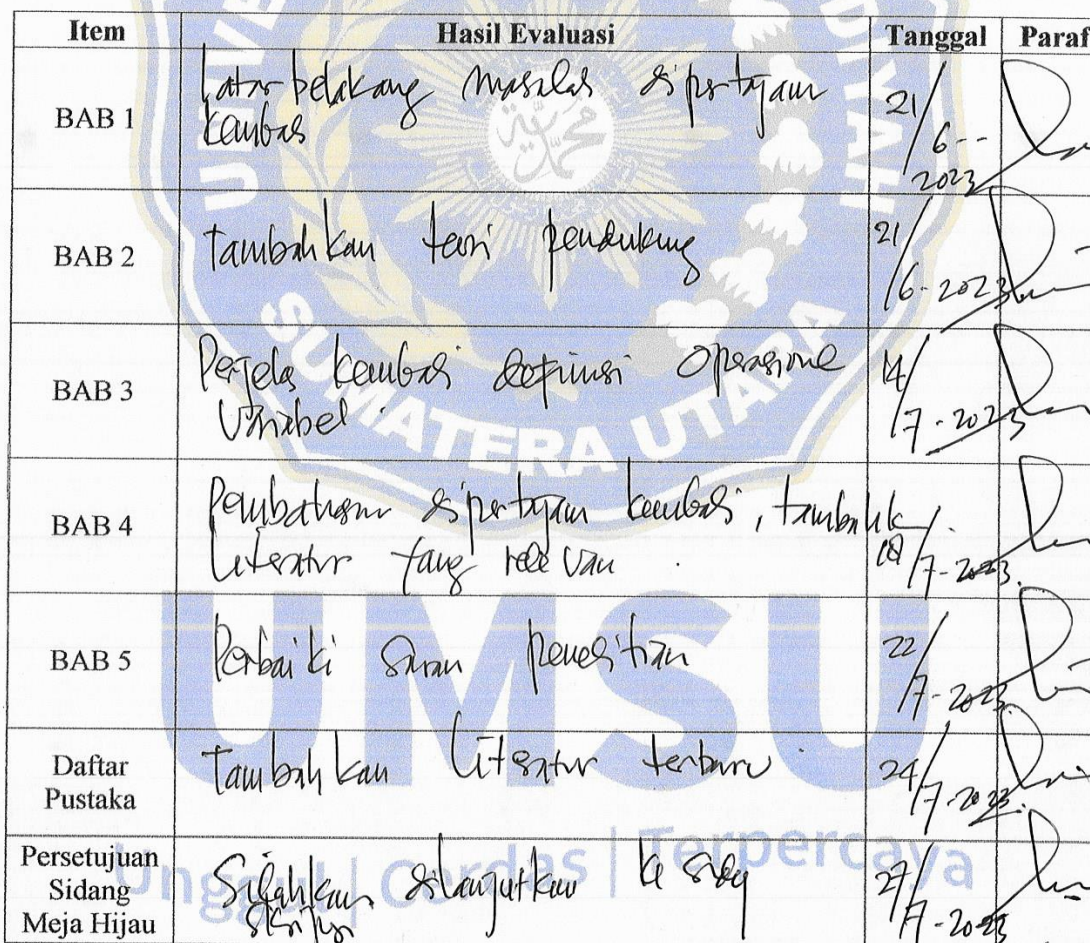 Item Hasil Evaluasi Tanggal Paraf
BAB 1
Latar belakang masalah dipertajam
kembali
21/6-
2023
BAB 2
Tambahkan teori pendukung
21/6-2023
BAB 3
Perjelas kembali definisi operasional
Variabel
14/7-2023
BAB 4
Pembahasan dipertajam kembali, tambahk
literatur yang relevan
/7-2023
BAB 5
Perbaiki saran penelitian
22/7-2023
Daftar
Pustaka
Tambahkan literatur terbaru
24/7-2023
Persetujuan
Sidang
Meja Hijau
Silahkan dilanjutkan ke sidang
skripsi
27/7-2023
SUMATERA UTARA
UMSU
Unggul | Cerdas | Terpercaya